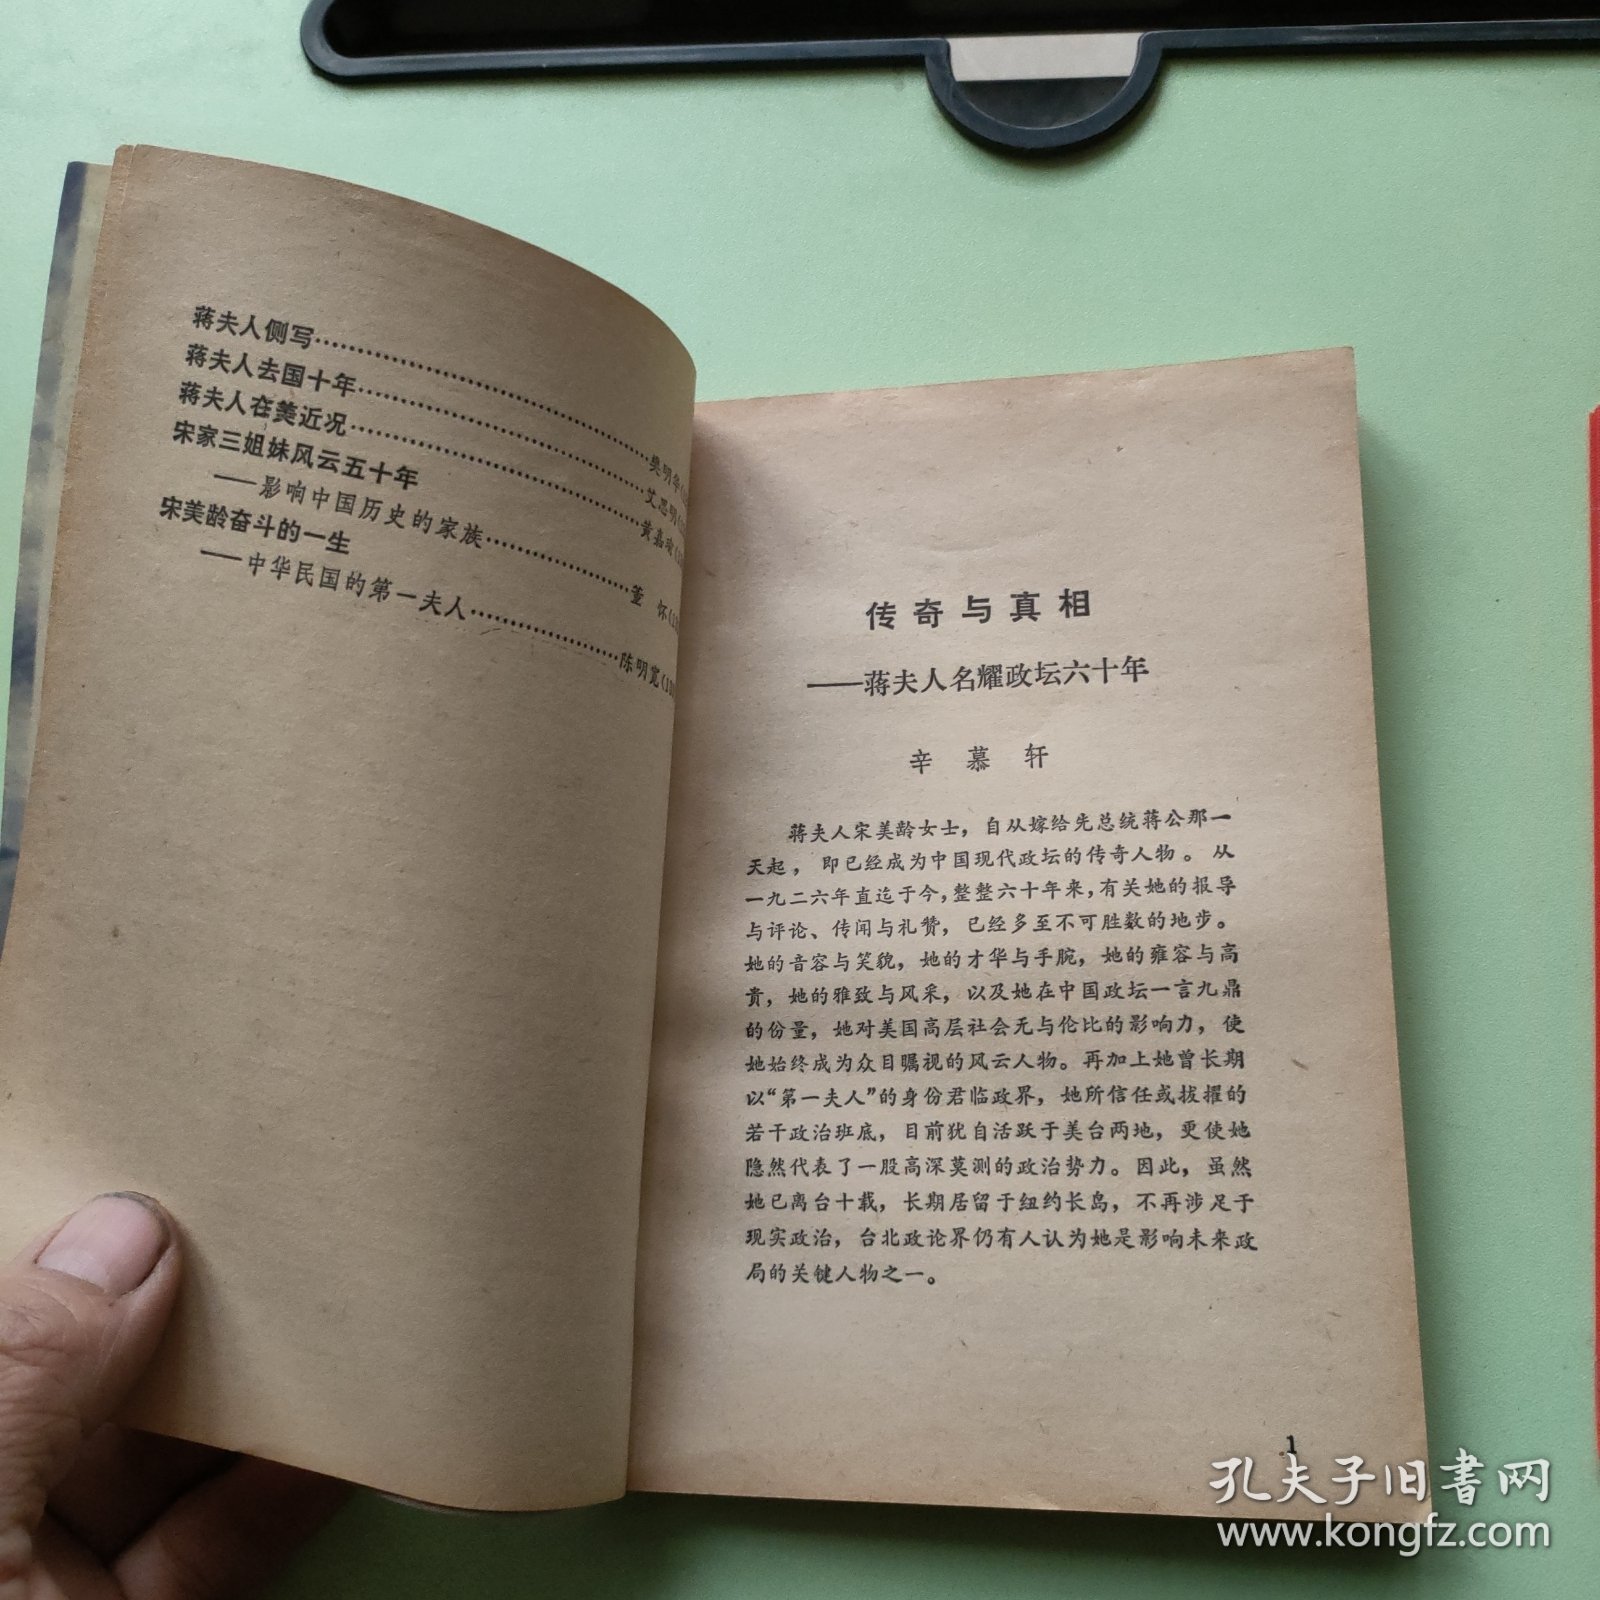 蒋夫人侧写……樊明华
蒋夫人去国十年……艾思明
蒋夫人在美近况……黄嘉瑜
宋家三姐妹风云五十年
——影响中国历史的家族……董 怀
宋美龄奋斗的一生
——中华民国的第一夫人……陈明宽
传奇与真相
——蒋夫人名耀政坛六十年
辛慕轩
蒋夫人宋美龄女士，自从嫁给先总统蒋公那一
天起，即已经成为中国现代政坛的传奇人物。从
一九二六年直迄于今，整整六十年来，有关她的报导
与评论、传闻与礼赞，已经多至不可胜数的地步。
她的音容与笑貌，她的才华与手腕，她的雍容与高
贵，她的雅致与风采，以及她在中国政坛一言九鼎
的份量，她对美国高层社会无与伦比的影响力，使
她始终成为众目瞩视的风云人物。再加上她曾长期
以“第一夫人”的身份君临政界，她所信任或拔擢的
若干政治班底，目前犹自活跃于美台两地，更使她
隐然代表了一股高深莫测的政治势力。因此，虽然
她已离台十载，长期居留于纽约长岛，不再涉足于
现实政治，台北政论界仍有人认为她是影响未来政
局的关键人物之一。
1
孔夫子旧书网
www.kongfz.com